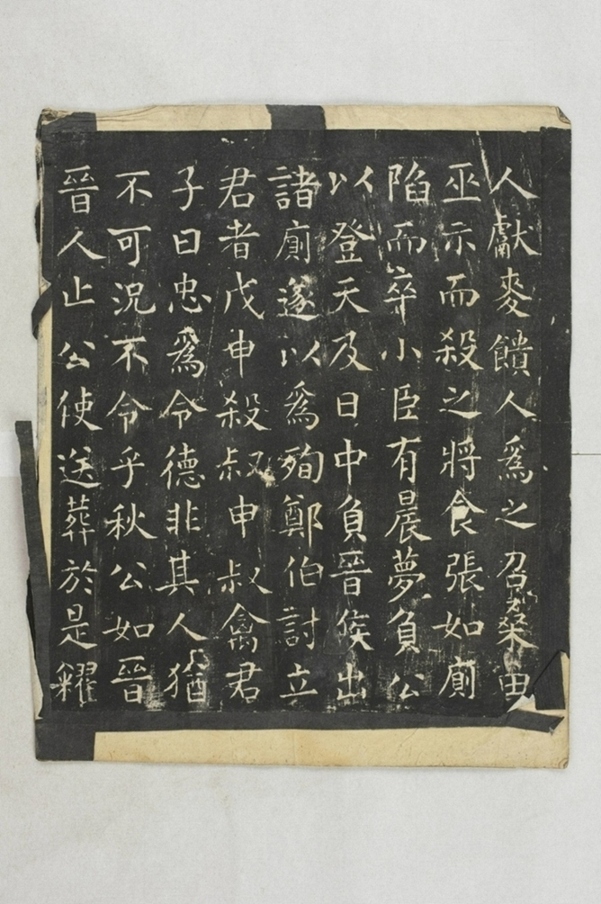 人獻麥饋人爲之召桑田
巫示而殺之將食張如廁
陷而卒小臣有晨夢負公
以登天及日中負晉侯出
諸廁遂以爲殉鄭伯討立
君者戊申殺叔申叔禽君
子曰忠爲令德非其人猶
不可況不令乎秋公如晉
晉人止公使送葬於是糴